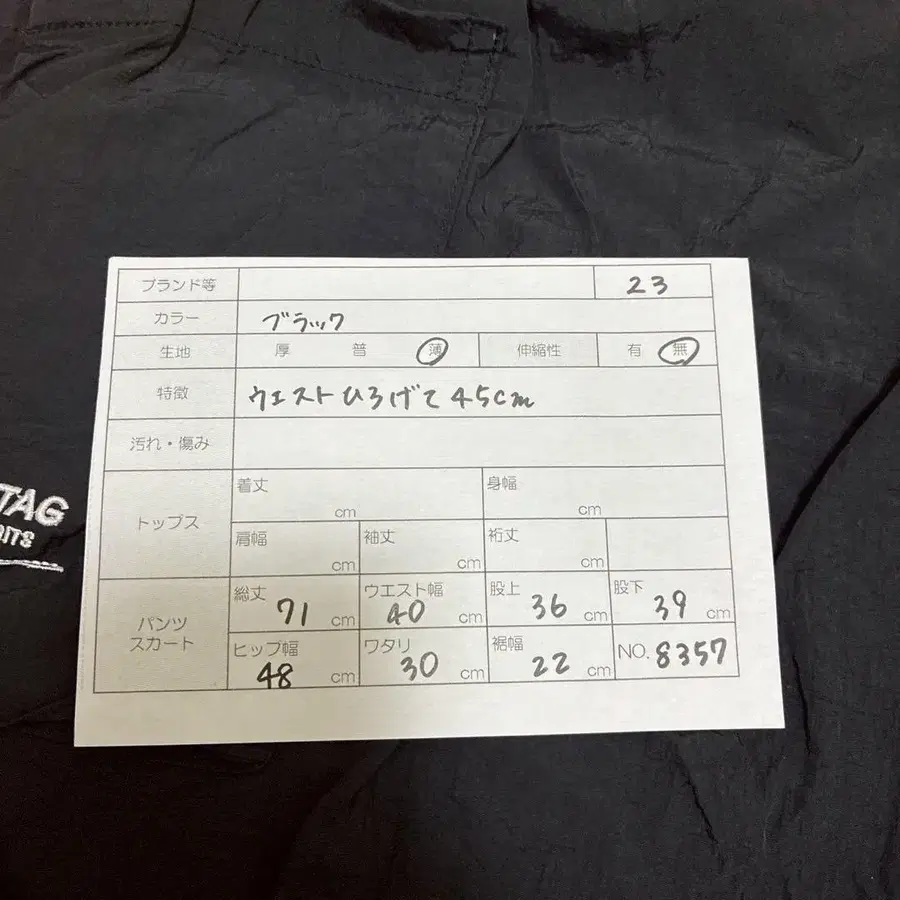 ブランド等 23
カラー ブラック
生地 厚 普 薄 伸縮性 有 無
特徴 ウエストひろげて45cm
汚れ・傷み
トップス
着丈 cm 身幅 cm
肩幅 cm 袖丈 cm 裄丈 cm
パンツ
スカート
総丈 71 cm ウエスト幅 40 cm 股上 36 cm 股下 39 cm
ヒップ幅 48 cm ワタリ 30 cm 裾幅 22 cm NO. 8357
TAG